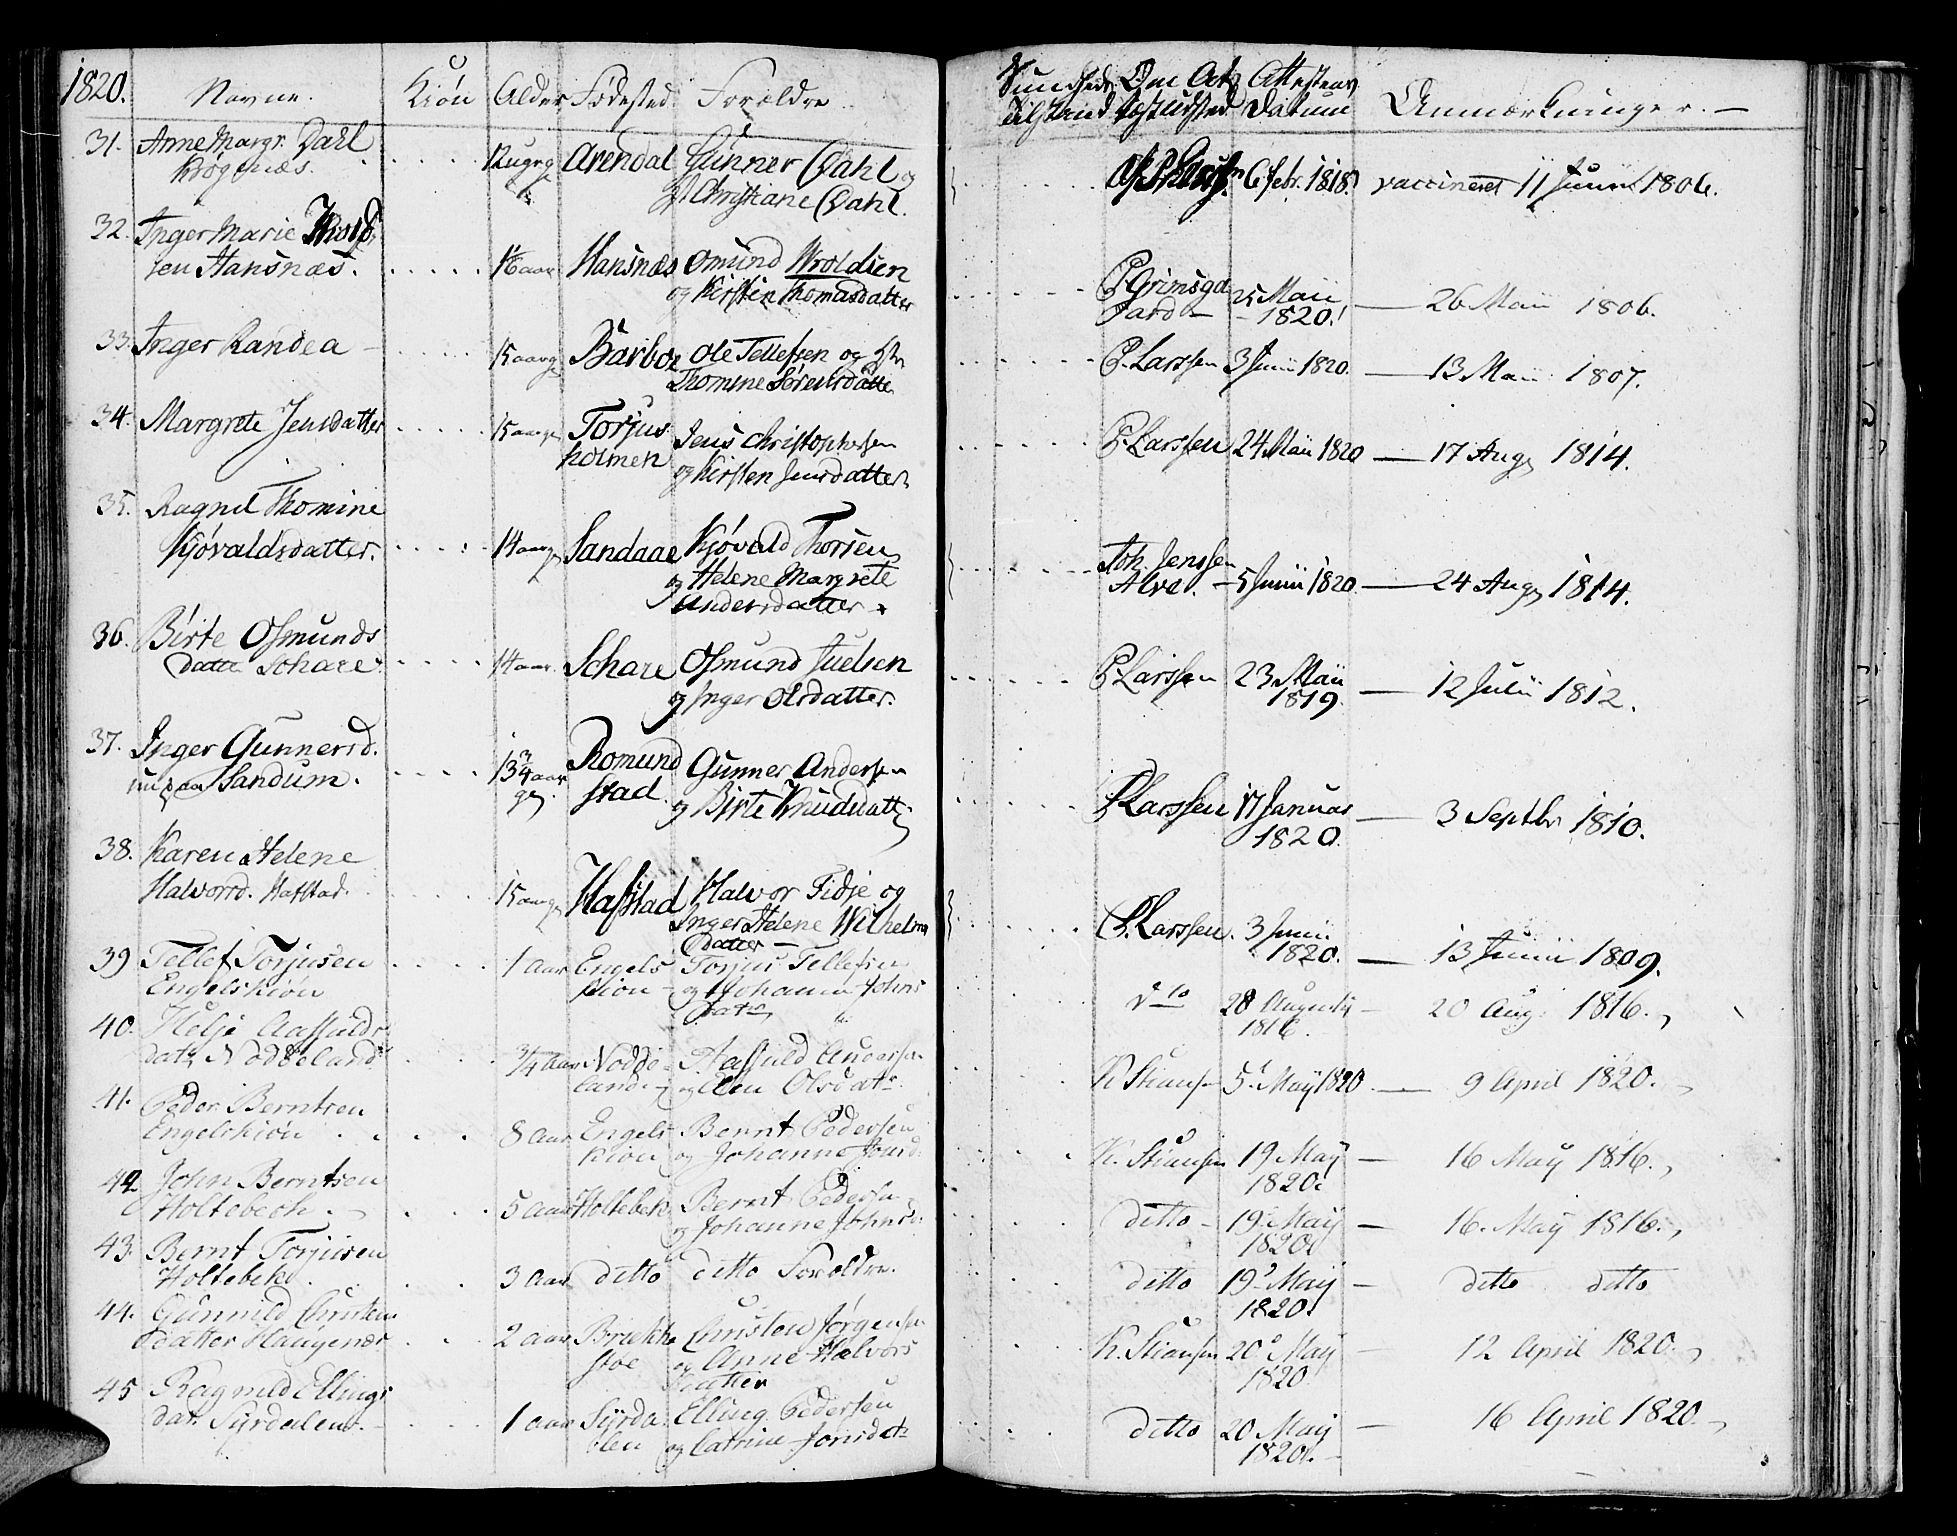 1820.
Navne. Kiön Alder Födested. Foræld​re.
Sundheds Om Att Attestens
tilstand Datum Anmærkninger. —
31. Anne Margr. Dahl
Arendal Gunner Dahl og
Christiane Dahl.
6 Febr. 1818. vaccineret 11 Junii 1806.
32. Inger Marie
sen Hansnæs. 16 aar Hansnæs Osmund Wroldsen
og Kirsten Thomasdatter
P Grimsga
ard — 25 Maii
1820. — 26 Maii 1806.
33. Inger Randea 15 aar Barboe Ole Tellefsen og
Thomine Sørensdatte
P. Larssen 3 Junii 1820. — 13 Maii 1807.
34. Margrete Jensdatter 15 aar Torjus
holmen Jens Christophersen
og Kirsten Jensdatter
P Larssen 24 Maii 1820 — 17 Aug 1814.
35. Ragnil Thomine
Kjövaldsdatter. 14 aar Sandaae Kjövald Thorsen
og Helene Margrete
Andersdatter
Joh. Jenssen
Alve. 5 Junii 1820 — 24 Aug 1814.
36. Birte Osmunds
datte Schare 14 aar Schare Osmund Juelsen
og Inger Olsdatter.
P Larssen 23 Maii
1819. — 12 Julii 1812.
37. Inger Gunnersd.
Sandum. 13 3/4 aar
Romund
stad Gunner Andersen
og Birte Knudsdatt
P Larssen 17 Januar
1820. — 3 Septbr 1810.
38. Karen Helene
Halvorsd. Hafstad. 15 aar Hafstad Halvor Fidje og
Inger Helene Wilhelms
datter —
P. Larssen. 3 Junii
1820. — 13 Junii 1809.
39 Tellef Torjusen
Engelskiön 1 aar Engels
kion Torjus Tellefsen
og Johanne Johns
Datr
dto 28 Augusti
1816. — 20 Aug: 1816.
40. Helje Aasfulds
datr Noddeland 3/4 aar Nodde
land Aasfuld Andersen
og Elen Olsdatr
K Stiansen 5 May 1820 — 9 April 1820.
41. Peder Berntsen
Engelskiön 8 aar Engels
kion Bernt Pedersen
og Johanne Jonsd.
K. Stiansen 19 May
1820. — 16 May 1816.
42 John Berntsen
Holtebech. 5 aar Holtebek Bernt Pedersen
og Johanne Johnsd.
ditto — 19 May
1820. — 16. May 1816.
43. Bernt Torjusen
Holtebek. 3 aar ditto ditto Foræld​re.
ditto 19 May
1820. — ditto ditto
44. Gunnild Christen
datter Haugenær 2 aar Brække
stoe Christen Jørgensen
og Anne Halvors
datter
K. Stiansen 20 May
1820 — 12 April 1820.
45 Ragnild Ellings
dat. Syrdalen 1 aar Syrda
len Elling Pedersen
og Catrine Jonsdatr
ditto 20 May
1820. — 16 April 1820.